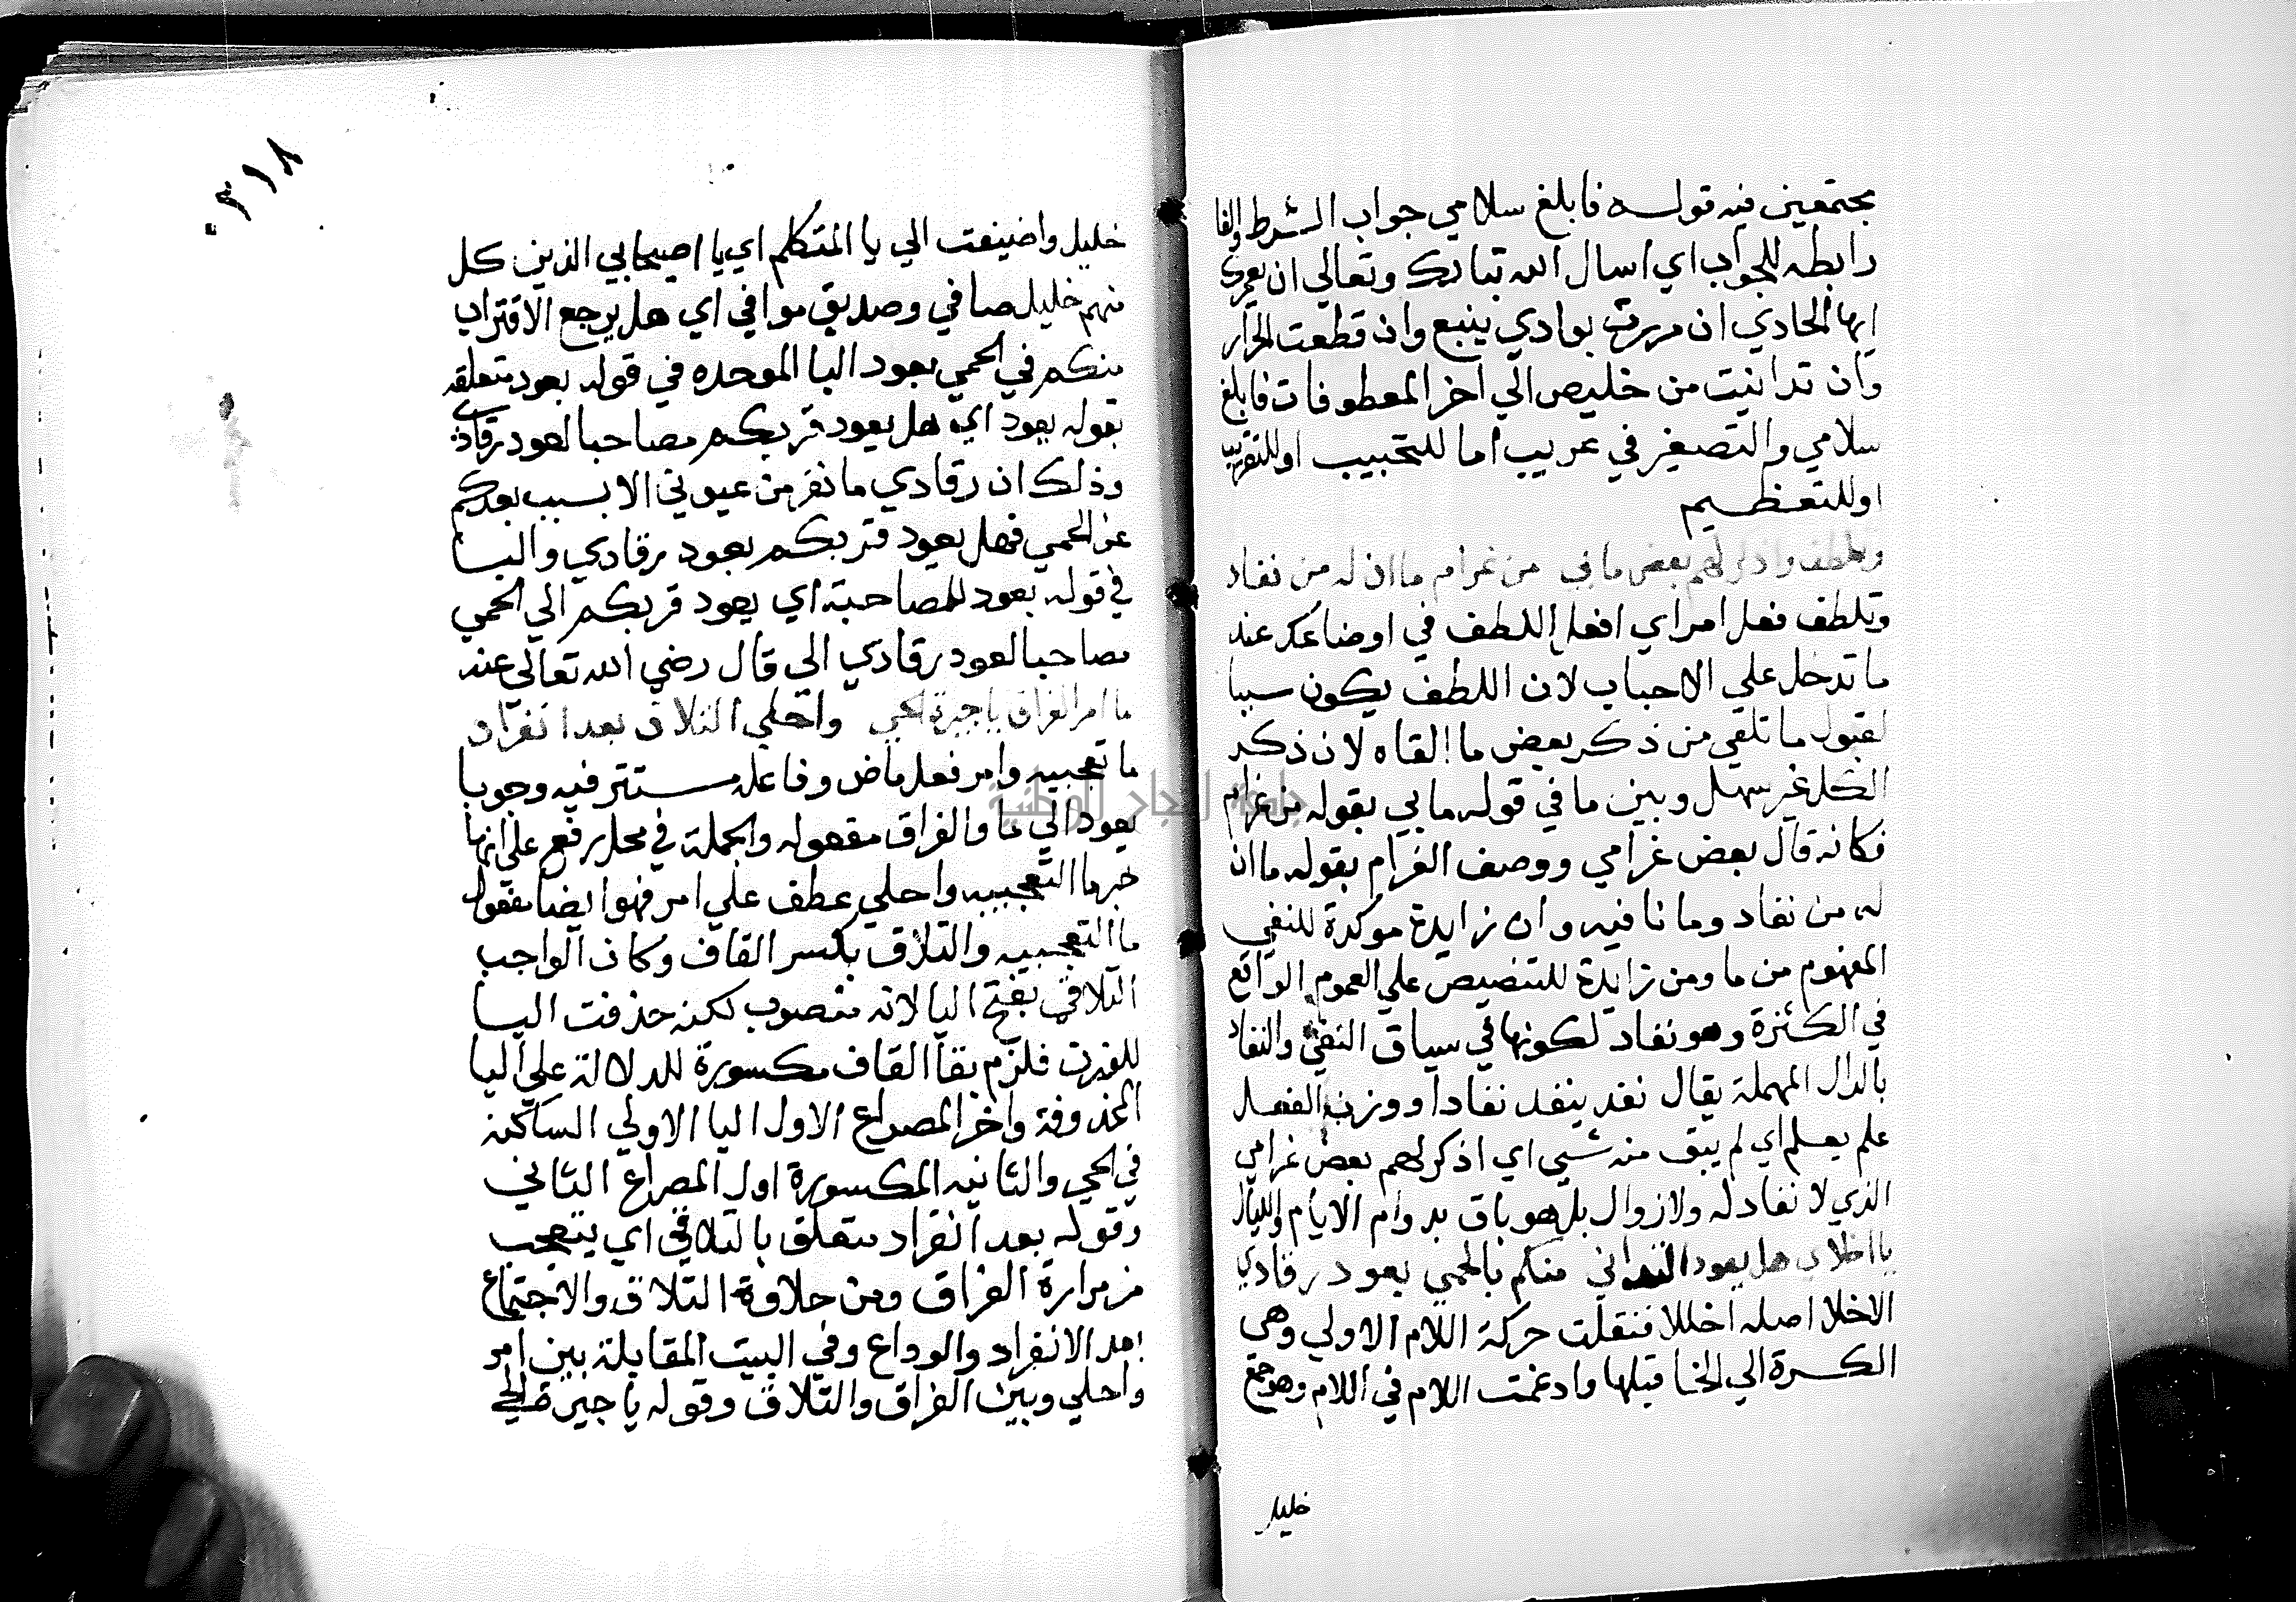 مجتمعين فيه قوله فابلغ سلامي جواب الشرط والفا
رابطه للجواب اي اسال الله تبارك وتعالي ان يعمرك
ايها الحادي ان مررت بوادي ينبع وان قطعت الحرار
وان تدانيت من خليص الي اخر المعطوفات فابلغ
سلامي والتصغير في عريب اما للتحبيب او للتقريب
او للتعظيم
وتلطف واذكر لهم بعض ما بي من غرام ما ان له من نفاد
وتلطف فعل امر اي افعل اللطف في اوضاعك عند
ما تدخل علي الاحباب لان اللطف يكون سببا
لقبول ما تلقي من ذكر بعض ما القاه لان ذكر
الكل غير سهل وبين ما في قوله ما بي بقوله من غرام
فكانه قال بعض غرامي ووصف الغرام بقوله ما ان
له من نفاد وما نافيه وان زايدة موكدة للنفي
المفهوم من ما ومن زايدة للتنصيص علي العموم الواقع
في النكرة وهو نفاد لكونها في سياق النفي والنفاد
بالدال المهملة يقال نفد ينفد نفادا ووزن الفعل
علم يعلم اي لم يبق منه شي اي اذكر لهم بعض غرامي
الذي لا نفاد له ولا زوال بل هو باق بدوام الايام والليال
يا اخلاي هل يعود التداني منكم بالحمي بعود رقادي
الاخلا اصله اخللا فنقلت حركة اللام الاولي وهي
الكسرة الي الخا قبلها وادغمت اللام في اللام وهو جمع
خليل
٣١٨
خليل واضيفت الي يا المتكلم اي يا اصيحابي الذين كل
منهم خليل صافي وصديق موافي اي هل يرجع الاقتراب
منكم في الحمي بعود البا الموحده في قوله بعود متعلقه
بقوله يعود اي هل يعود قربكم مصاحبا لعود رقادي
وذلك ان رقادي ما نفر من عيوني الا بسبب بعدكم
عن الحمي فهل يعود قربكم بعود رقادي والبا
في قوله بعود للمصاحبة اي يعود قربكم الي الحمي
مصاحبا لعود رقادي الي قال رضي الله تعالي عنه
ما امر الفراق يا جيرة الحي واحلي التلاق بعد انفراد
ما تعجبيه وامر فعل ماض وفاعله مستتر فيه وجوبا
يعود الي ما والفراق مفعوله والجملة في محل رفع علي انها
خبر ما التعجبيه واحلي عطف علي امر فهو ايضا مفعول
ما التعجبيه والتلاق بكسر القاف وكان الواجب
التلاقي بفتح اليا لانه منصوب لكنه حذفت اليا
للوزن فلزم بقا القاف مكسورة للدلالة علي اليا
المحذوفة واخر المصراع الاول اليا الاولي الساكنه
في الحي والثانيه المكسورة اول المصراع الثاني
وقوله بعد انفراد متعلق بالتلاقي اي يتعجب
من مرارة الفراق ومن حلاوة التلاق والاجتماع
بعد الانفراد والوداع وفي البيت المقابلة بين امر
واحلي وبين الفراق والتلاق وقوله يا جيرة الحي